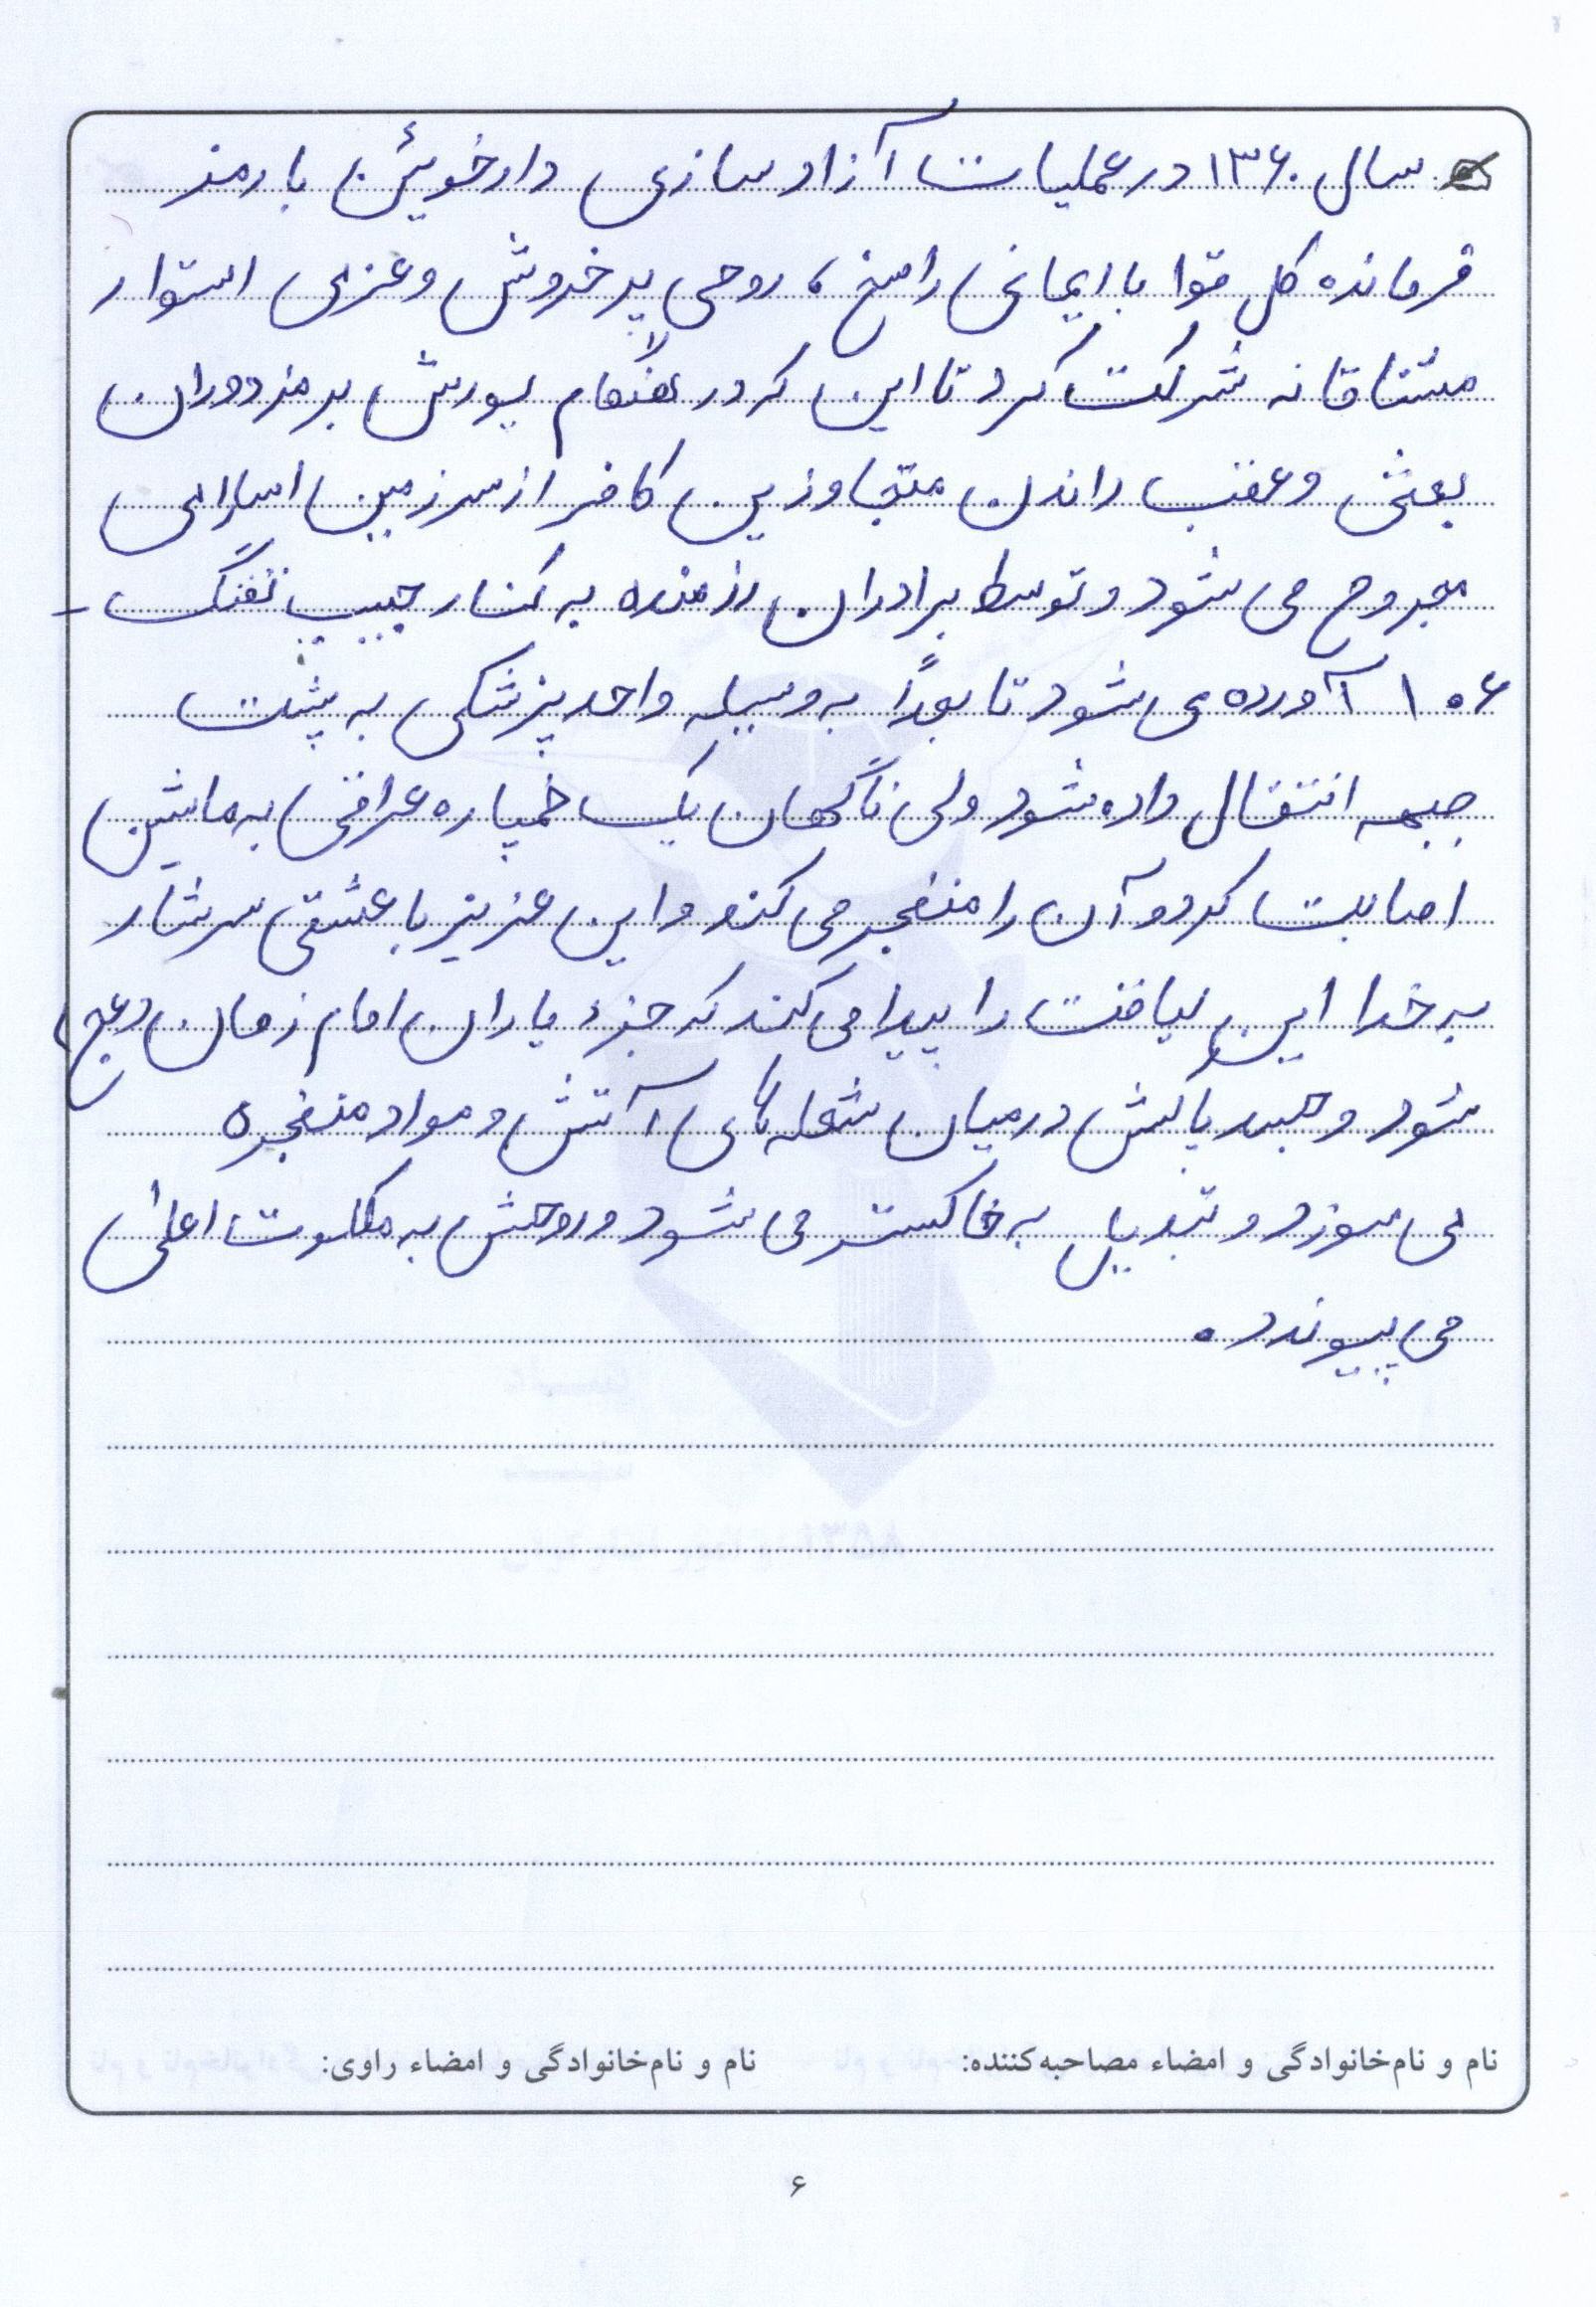 سال ۱۳۶۰ در عملیات آزاد سازی دارخوئین با رمز
فرمانده کل قوا با ایمانی راسخ ، روحی پر خروش و عزمی استوار
مشتاقانه شرکت کرد تا این که در هنگام یورش بر مزدوران
بعثی و عقب راندن متجاوزین کافر از سرزمین اسلامی
مجروح می شود و توسط برادران رزمنده به کنار جیپ تفنگ -
۱۰۶ آورده می شود تا بعداً به وسیله واحد پزشکی به پشت
جبهه انتقال داده شود ولی ناگهان یک خمپاره عراقی به ماشین
اصابت کرد و آن را منفجر می کند و این عزیز با عشقی سرشار
به خدا این لیاقت را پیدا می کند که جزء یاران امام زمان (عج)
شود و جسد پاکش در میان شعله های آتش و مواد منفجره
می سوزد و تبدیل به خاکستر می شود و روحش به ملکوت اعلی
می پیوندد .
نام و نام‌خانوادگی و امضاء مصاحبه‌کننده: نام و نام‌خانوادگی و امضاء راوی:
۶